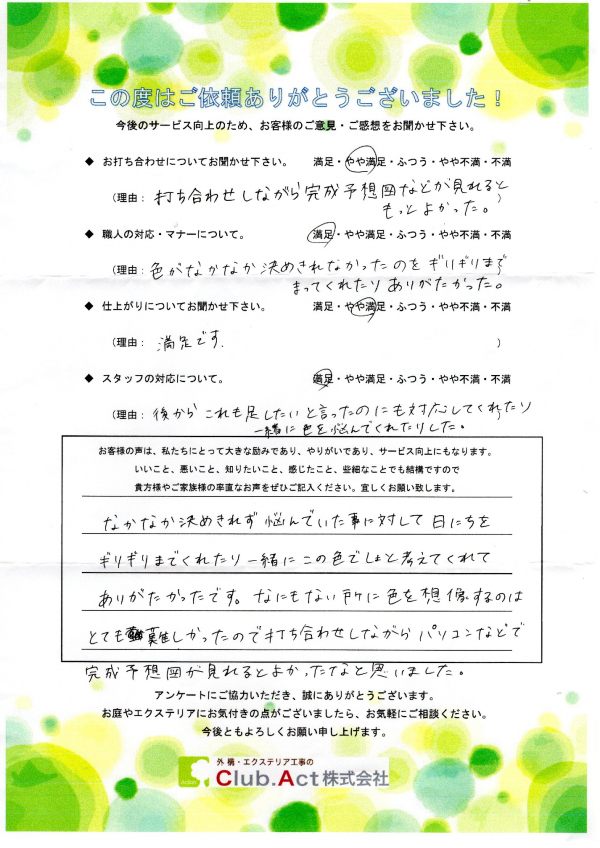 この度はご依頼ありがとうございました！
今後のサービス向上のため、お客様のご意見・ご感想をお聞かせ下さい。
◆ お打ち合わせについてお聞かせ下さい。 満足・やや満足・ふつう・やや不満・不満
（理由： 打ち合わせしながら完成予想図などが見れると
もっとよかった。 ）
◆ 職人の対応・マナーについて。 満足・やや満足・ふつう・やや不満・不満
（理由： 色がなかなか決めきれなかったのをギリギリまで
まってくれたりありがたかった。
◆ 仕上がりについてお聞かせ下さい。 満足・やや満足・ふつう・やや不満・不満
（理由： 満足です. ）
◆ スタッフの対応について。 満足・やや満足・ふつう・やや不満・不満
（理由： 後からこれも足したいと言ったのにも対応してくれたり
一緒に色を悩んでくれたりした。
お客様の声は、私たちにとって大きな励みであり、やりがいであり、サービス向上にもなります。
いいこと、悪いこと、知りたいこと、感じたこと、些細なことでも結構ですので
貴方様やご家族様の率直なお声をぜひご記入ください。宜しくお願い致します。
なかなか決めきれず悩んでいた事に対して日にちを
ギリギリまでくれたり一緒にこの色でしょと考えてくれて
ありがたかったです。なにもない所に色を想像するのは
とても難しかったので打ち合わせしながらパソコンなどで
完成予想図が見れるとよかったなと思いました。
アンケートにご協力いただき、誠にありがとうございます。
お庭やエクステリアにお気付きの点がございましたら、お気軽にご相談ください。
今後ともよろしくお願い申し上げます。
外構・エクステリア工事の
Club.Act株式会社